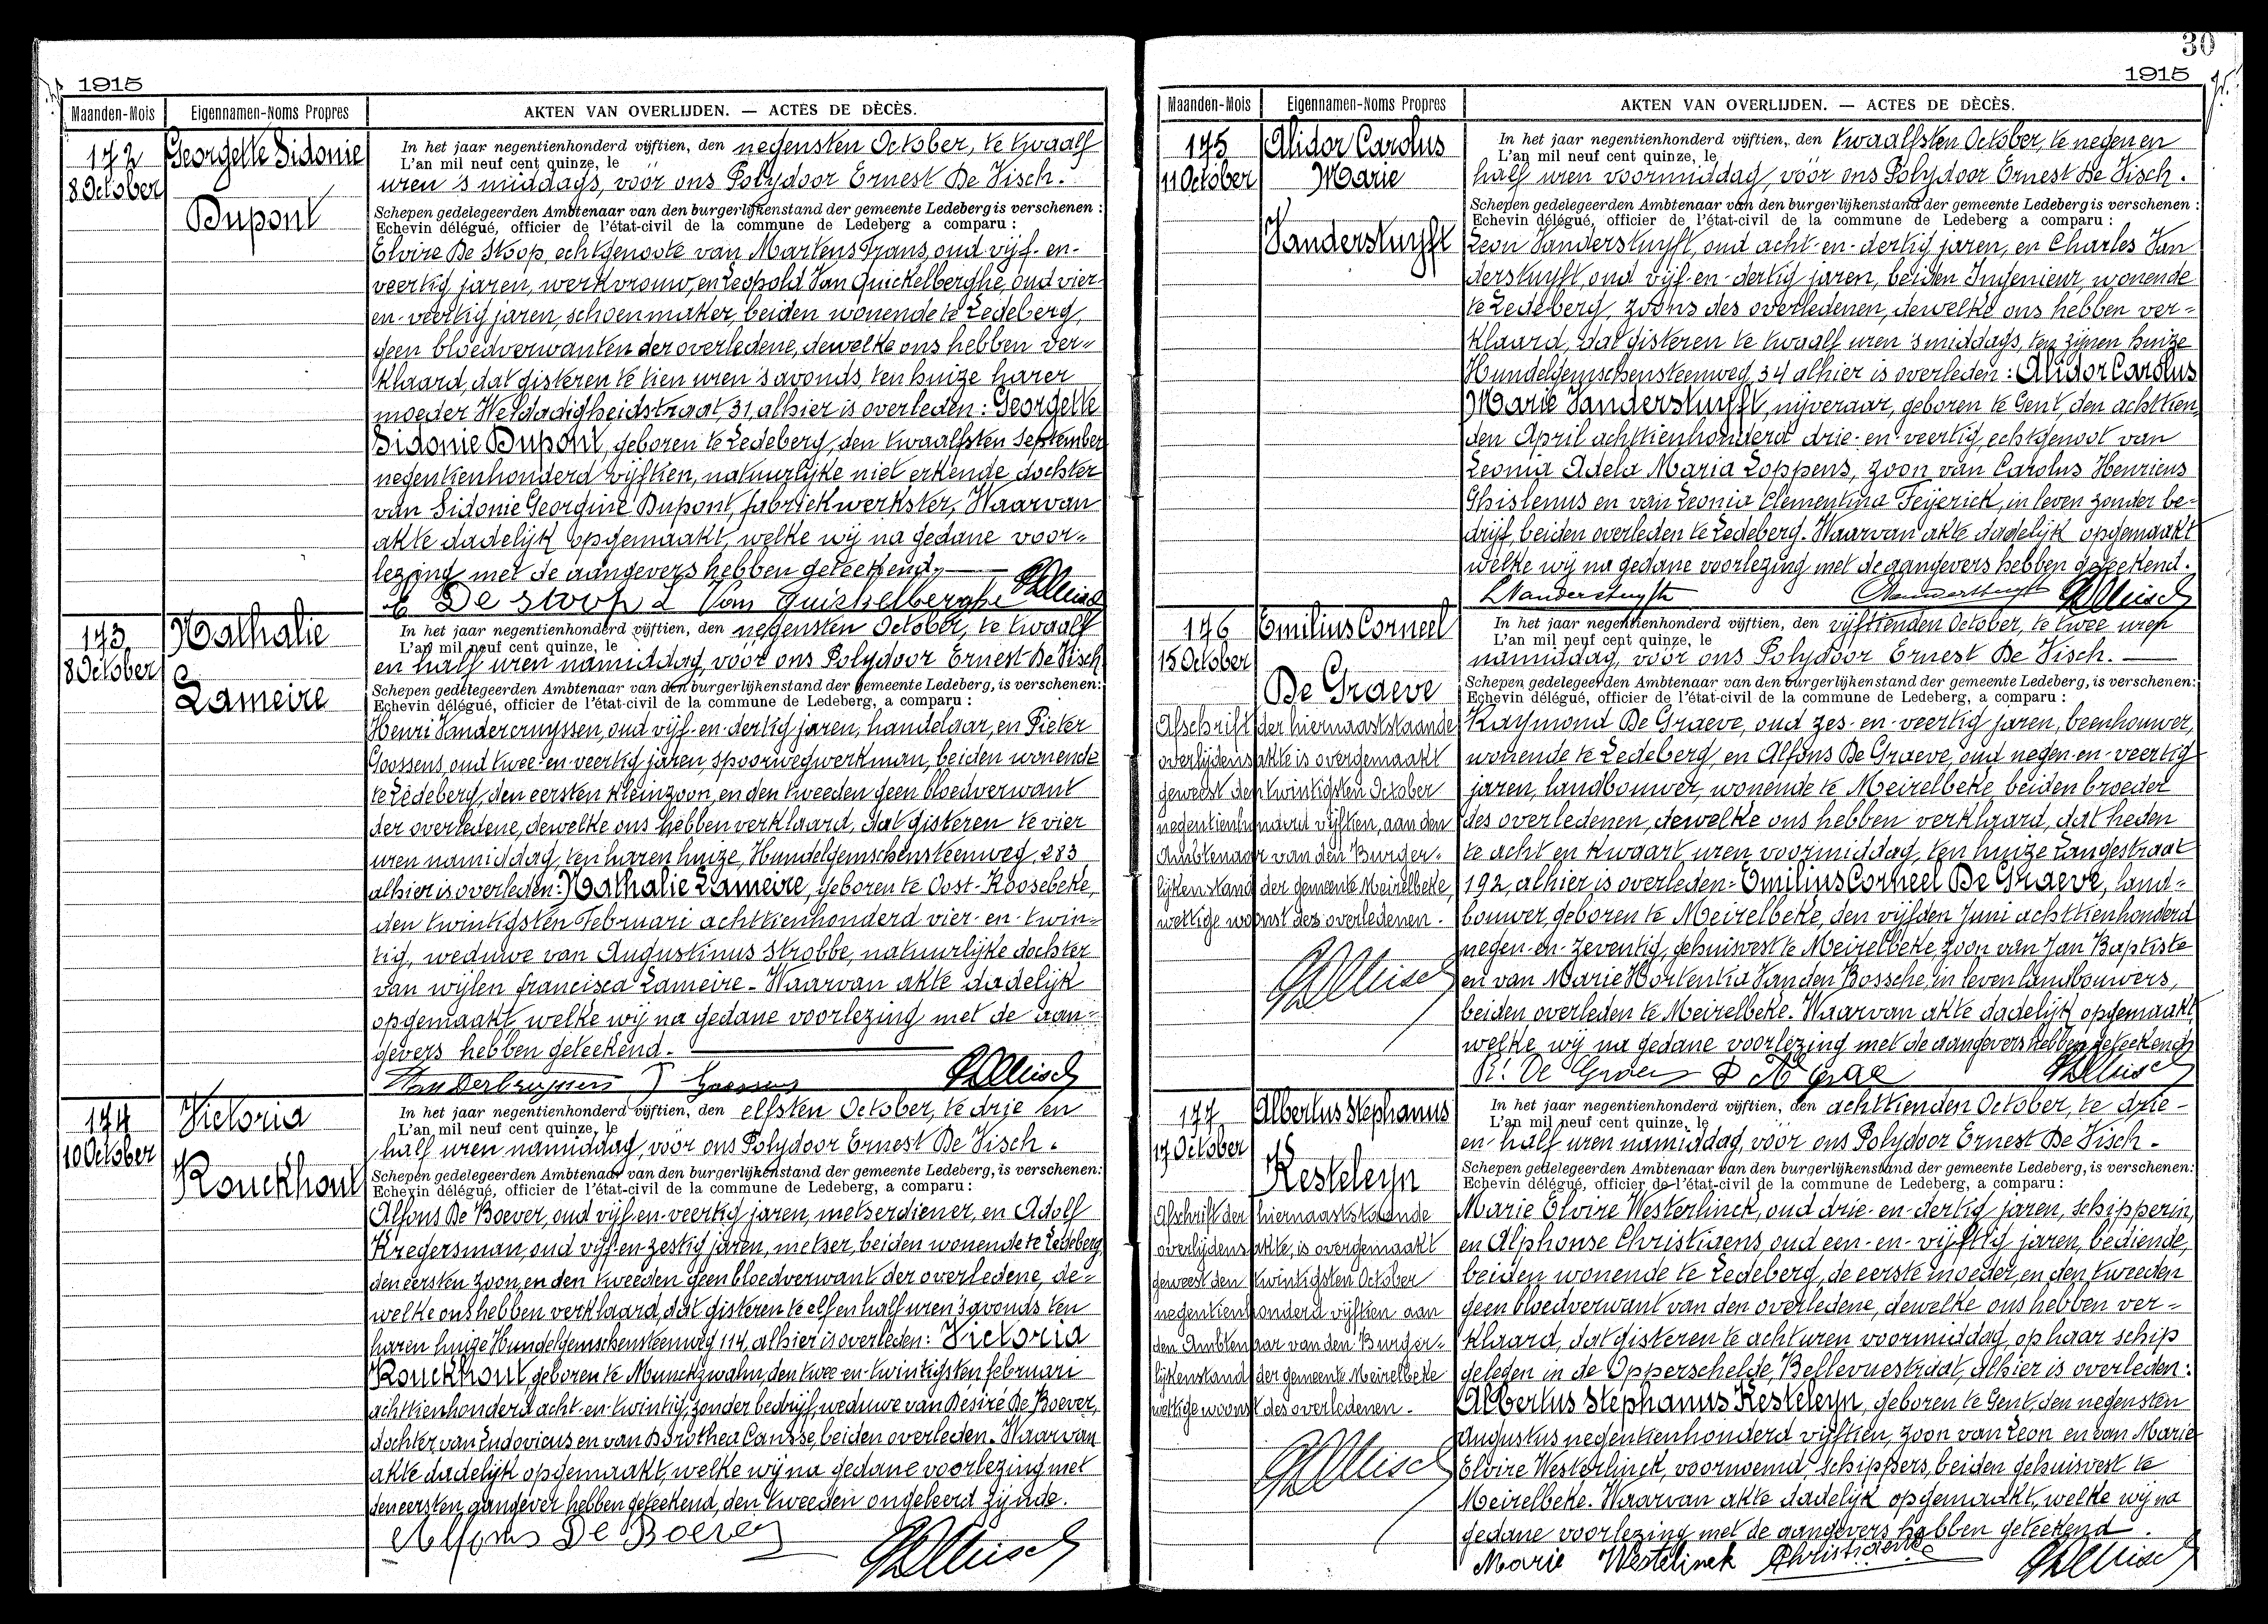 1915
Maanden-Mois Eigennamen-Noms Propres AKTEN VAN OVERLIJDEN. — ACTES DE DÈCÈS.
172
8 October
Georgette Sidonie
Dupont
In het jaar negentienhonderd vijftien, den negensten October, te twaalf
L'an mil neuf cent quinze, le
uren 's middags, vóór ons Polydoor Ernest De Visch.
Schepen gedelegeerden Ambtenaar van den burgerlijkenstand der gemeente Ledeberg is verschenen :
Echevin délégué, officier de l'état-civil de la commune de Ledeberg a comparu :
Elvire De Stoop, echtgenoote van Martens Frans, oud vijf-en-
veertig jaren, werkvrouw, en Leopold Van Quickelberghe, oud vier-
en-veertig jaren, schoenmaker, beiden wonende te Ledeberg,
geen bloedverwanten der overledene, dewelke ons hebben ver-
klaard, dat gisteren te tien uren 's avonds, ten huize harer
moeder Weldadigheidstraat, 31, alhier is overleden: Georgette
Sidonie Dupont, geboren te Ledeberg, den twaalfsten September
negentienhonderd vijftien, natuurlijke niet erkende dochter
van Sidonie Georgine Dupont, fabriekwerkster. Waarvan
akte dadelijk opgemaakt, welke wij na gedane voor-
lezing met de aangevers hebben geteekend.
E De stoop L Van Quickelberghe
173
8 October
Nathalie
Lameire
In het jaar negentienhonderd vijftien, den negensten October, te twaalf
L'an mil neuf cent quinze, le
en half uren namiddag, vóór ons Polydoor Ernest De Visch
Schepen gedelegeerden Ambtenaar van den burgerlijkenstand der gemeente Ledeberg, is verschenen:
Echevin délégué, officier de l'état-civil de la commune de Ledeberg, a comparu :
Henri Vandercruyssen, oud vijf-en-dertig jaren, handelaar, en Pieter
Goossens, oud twee-en-veertig jaren, spoorwegwerkman, beiden wonende
te Ledeberg, den eersten kleinzoon, en den tweeden geen bloedverwant
der overledene, dewelke ons hebben verklaard, dat gisteren te vier
uren namiddag, ten haren huize, Hundelgemschensteenweg, 283,
alhier is overleden: Nathalie Lameire, geboren te Oost-Roosebeke,
den twintigsten Februari achttienhonderd vier-en-twin-
tig, weduwe van Augustinus Strobbe, natuurlijke dochter
van wijlen francisca Lameire. Waarvan akte dadelijk
opgemaakt, welke wij na gedane voorlezing met de aan-
gevers hebben geteekend.
174
10 October
Victoria
Rouckhout
In het jaar negentienhonderd vijftien, den elfsten October, te drie en
L'an mil neuf cent quinze, le
half uren namiddag, vóór ons Polydoor Ernest De Visch.
Schepen gedelegeerden Ambtenaar van den burgerlijkenstand der gemeente Ledeberg, is verschenen:
Echevin délégué, officier de l'état-civil de la commune de Ledeberg, a comparu :
Alfons De Boever, oud vijf-en-veertig jaren, metserdiener, en Adolf
Kregersman, oud vijf-en-zestig jaren, metser, beiden wonende te Ledeberg,
den eersten zoon, en den tweeden geen bloedverwant der overledene, de-
welke ons hebben verklaard, dat gisteren te elf en half uren 's avonds ten
haren huize Hundelgemschensteenweg 114, alhier is overleden: Victoria
Rouckhout, geboren te Munckzwalm, den twee-en-twintigsten februari
achttienhonderd acht-en-twintig, zonder bedrijf, weduwe van Désiré De Boever,
dochter van Ludovicus en van Dorothea Cansse, beiden overleden. Waarvan
akte dadelijk opgemaakt, welke wij na gedane voorlezing met
den eersten aangever hebben geteekend, den tweeden ongeleerd zijnde.
Alfons De Boever
30
1915
Maanden-Mois Eigennamen-Noms Propres AKTEN VAN OVERLIJDEN. — ACTES DE DÈCÈS.
175
11 October
Alidor Carolus
Marie
Vanderstuyft
In het jaar negentienhonderd vijftien, den twaalfsten October, te negen en
L'an mil neuf cent quinze, le
half uren voormiddag, vóór ons Polydoor Ernest De Visch.
Schepen gedelegeerden Ambtenaar van den burgerlijkenstand der gemeente Ledeberg is verschenen :
Echevin délégué, officier de l'état-civil de la commune de Ledeberg a comparu :
Leon Vanderstuyft, oud acht-en-dertig jaren, en Charles Van
derstuyft, oud vijf-en-dertig jaren, beiden Ingenieur, wonende
te Ledeberg, zoons des overledenen, dewelke ons hebben ver-
klaard, dat gisteren te twaalf uren 's middags, ten zijnen huize
Hundelgemschensteenweg, 34 alhier is overleden: Alidor Carolus
Marie Vanderstuyft, nijveraar, geboren te Gent, den achttien
den April achttienhonderd drie-en-veertig, echtgenoot van
Leonia Adela Maria Loppens, zoon van Carolus Henricus
Ghislenus en van Leonia Clementina Feyerick, in leven zonder be-
drijf, beiden overleden te Ledeberg. Waarvan akte dadelijk opgemaakt
welke wij na gedane voorlezing met de aangevers hebben geteekend.
L Vanderstuyft
176
15 October
Emilius Corneel
De Graeve
Afschrift der hiernaaststaande
overlijdensakte is overgemaakt
geweest den twintigsten October
negentienhonderd vijftien, aan den
Ambtenaar van den Burger-
lijkenstand der gemeente Meirelbeke,
wettige woonst des overledenen.
In het jaar negentienhonderd vijftien, den vijftienden October, te twee uren
L'an mil neuf cent quinze, le
namiddag, vóór ons Polydoor Ernest De Visch.
Schepen gedelegeerden Ambtenaar van den burgerlijkenstand der gemeente Ledeberg, is verschenen:
Echevin délégué, officier de l'état-civil de la commune de Ledeberg, a comparu :
Raymond De Graeve, oud zes-en-veertig jaren, beenhouwer,
wonende te Ledeberg, en Alfons De Graeve, oud negen-en-veertig
jaren, landbouwer, wonende te Meirelbeke, beiden broeder
des overledenen, dewelke ons hebben verklaard, dat heden
te acht en kwaart uren voormiddag, ten huize Langestraat
192, alhier is overleden: Emilius Corneel De Graeve, land-
bouwer, geboren te Meirelbeke, den vijfden Juni achttienhonderd
negen-en-zeventig, gehuisvest te Meirelbeke, zoon van Jan Baptiste
en van Marie Hortentia Vanden Bossche, in leven landbouwers,
beiden overleden te Meirelbeke. Waarvan akte dadelijk opgemaakt,
welke wij na gedane voorlezing met de aangevers hebben geteekend
177
17 October
Albertus Stephanus
Kesteleyn
Afschrift der hiernaaststaande
overlijdensakte, is overgemaakt
geweest den twintigsten October
negentienhonderd vijftien aan
den Ambtenaar van den Burger-
lijkenstand der gemeente Meirelbeke
wettige woonst des overledenen.
In het jaar negentienhonderd vijftien, den achttienden October, te drie-
L'an mil neuf cent quinze, le
en-half uren namiddag, vóór ons Polydoor Ernest De Visch.
Schepen gedelegeerden Ambtenaar van den burgerlijkenstand der gemeente Ledeberg, is verschenen:
Echevin délégué, officier de l'état-civil de la commune de Ledeberg, a comparu :
Marie Elvire Westerlinck, oud drie-en-dertig jaren, schipperin,
en Alphonse Christiaens, oud een-en-vijftig jaren, bediende,
beiden wonende te Ledeberg, de eerste moeder, en den tweeden
geen bloedverwant van den overledene, dewelke ons hebben ver-
klaard, dat gisteren te acht uren voormiddag, op haar schip
gelegen in de Opperschelde, Bellevuestraat, alhier is overleden:
Albertus Stephanus Kesteleyn, geboren te Gent, den negensten
Augustus negentienhonderd vijftien, zoon van Leon en van Marie
Elvire Westerlinck, voornoemd schippers, beiden gehuisvest te
Meirelbeke. Waarvan akte dadelijk opgemaakt, welke wij na
gedane voorlezing met de aangevers hebben geteekend.
Marie Westelinck Christiaens